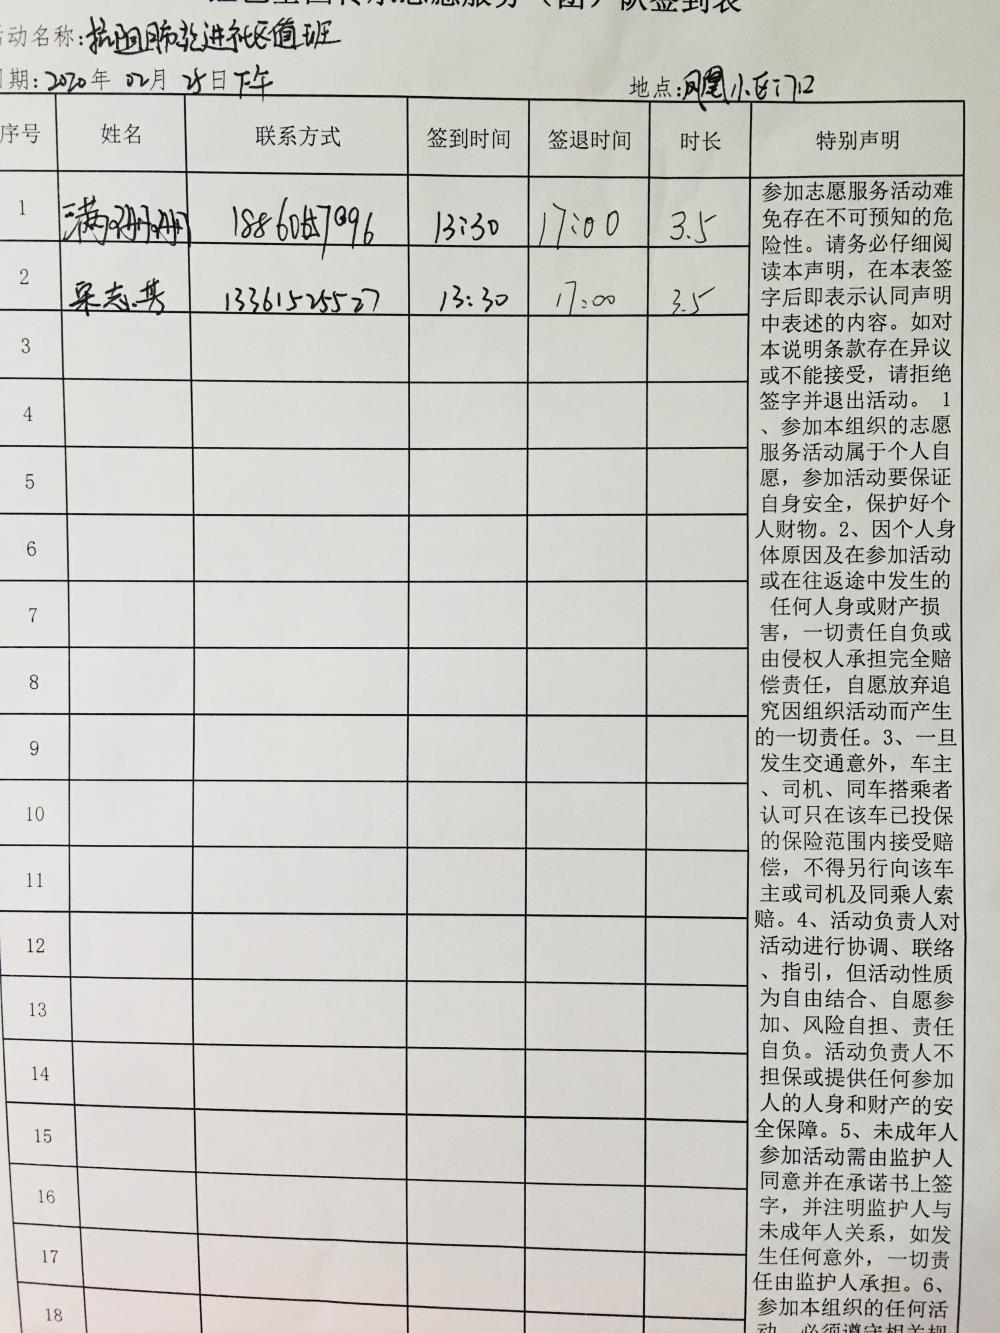 (团)队签到表
活动名称:抗阻肺炎进社区值班
日期:2020年 02月 25日下午
地点:凤凰小区门口
序号 姓名 联系方式 签到时间 签退时间 时长 特别声明
1 满珊珊 13:30 17:00 3.5
2 梁志芳 13361525527 13:30 17:00 3.5
3
4
5
6
7
8
9
10
11
12
13
14
15
16
17
18
参加志愿服务活动难
免存在不可预知的危
险性。请务必仔细阅
读本声明，在本表签
字后即表示认同声明
中表述的内容。如对
本说明条款存在异议
或不能接受，请拒绝
签字并退出活动。 1
、参加本组织的志愿
服务活动属于个人自
愿，参加活动要保证
自身安全，保护好个
人财物。2、因个人身
体原因及在参加活动
或在往返途中发生的
任何人身或财产损
害，一切责任自负或
由侵权人承担完全赔
偿责任，自愿放弃追
究因组织活动而产生
的一切责任。3、一旦
发生交通意外，车主
、司机、同车搭乘者
认可只在该车已投保
的保险范围内接受赔
偿，不得另行向该车
主或司机及同乘人索
赔。4、活动负责人对
活动进行协调、联络
、指引，但活动性质
为自由结合、自愿参
加、风险自担、责任
自负。活动负责人不
担保或提供任何参加
人的人身和财产的安
全保障。5、未成年人
参加活动需由监护人
同意并在承诺书上签
字，并注明监护人与
未成年人关系，如发
生任何意外，一切责
任由监护人承担。6、
参加本组织的任何活
动，必须遵守相关规